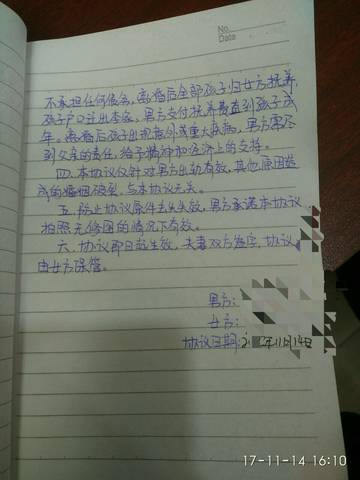 No.
Date
不承担任何债务，离婚后全部孩子归女方抚养，
孩子户口迁出李家，男方支付抚养费直到孩子成
年。离婚后孩子出现意外或重大疾病，男方需尽
到父亲的责任，给予精神和经济上的支持。
四、本协议仅针对男方出轨有效，其他原因造
成的婚姻破裂，与本协议无关。
五、防止协议原件丢失失效，男方承诺本协议
拍照无修图的情况下有效。
六、协议即日起生效，夫妻双方签字，协议
由女方保管。
男方：
女方：
协议日期：年11月14日
17-11-14 16:10